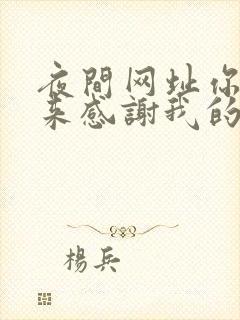 夜間网址你
来感謝我的
楊兵